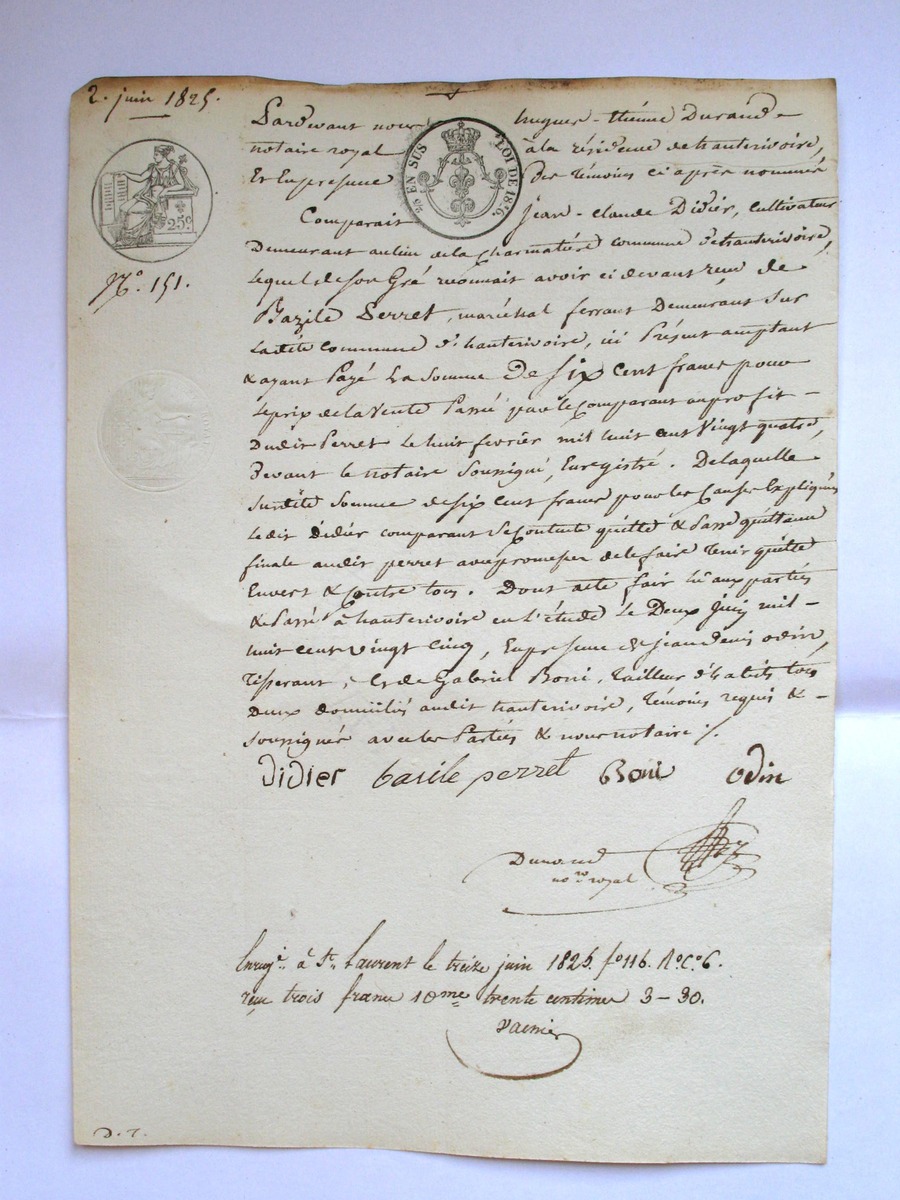 2. juin 1825.
Pardevant nous hugues-étiénne Durand
notaire royal à la résidence de hauterivoire,
Et En presence Des Témoins ci après nommés
EN SUS LOI DE 1816
25c.
Comparait Jean-Claude Didiér, cultivateur
Demeurant au lieu de la Charmatiére commune d'hauterivoire,
Lequel de son Gré reconnait avoir ci devant reçu de
No. 151.
Bazile Perret, maréchal ferrant Demeurant sur
Ladite Commune d'hauterivoire, ici Présent acceptant
& ayant Payé La Somme De Six Cent francs pour
Le prix de la Vente Passé par le Comparant au profit
Dudit Perret Le huit fevriér mil huit cent Vingt quatre,
Devant le notaire Soussigné, Enregistré. De laquelle
Susdite Somme de six cent francs pour les Causes Expliquées
Le dit Didiér comparant Se Contente quitte & Passe quittance
finale audit perret avec promesse de le faire tenir quitte
Envers & Contre tous. Dont acte fait lû aux partiés
& Passé à hauterivoire en l'étude Le Deux Juin mil
huit cent Vingt Cinq, En presence de jean denis odin,
Tisserant, & de Gabriel Boni, Tailleur d'habits tous
Deux domiciliés audit hauterivoire, Témoins requis &
Soussignés avec les Partiés & nous notaire ./.
Didier basile perret Boni odin
Durand
nore royal
Enregé. à St. Laurent le treize juin 1825. fo 116. Ro. Co. 6.
reçu trois francs 10me trente centimes 3-30.
D. 7.